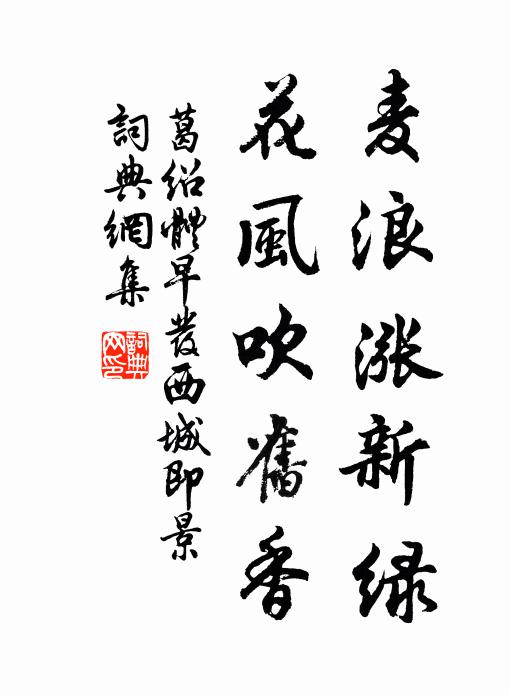 麦浪漲新緑
花風吹舊香
葛紹體早發西城即景
詞典網集
詞典网印